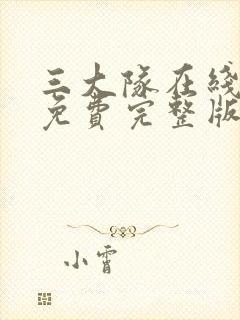 三大隊在綫
免費完整版
小霄